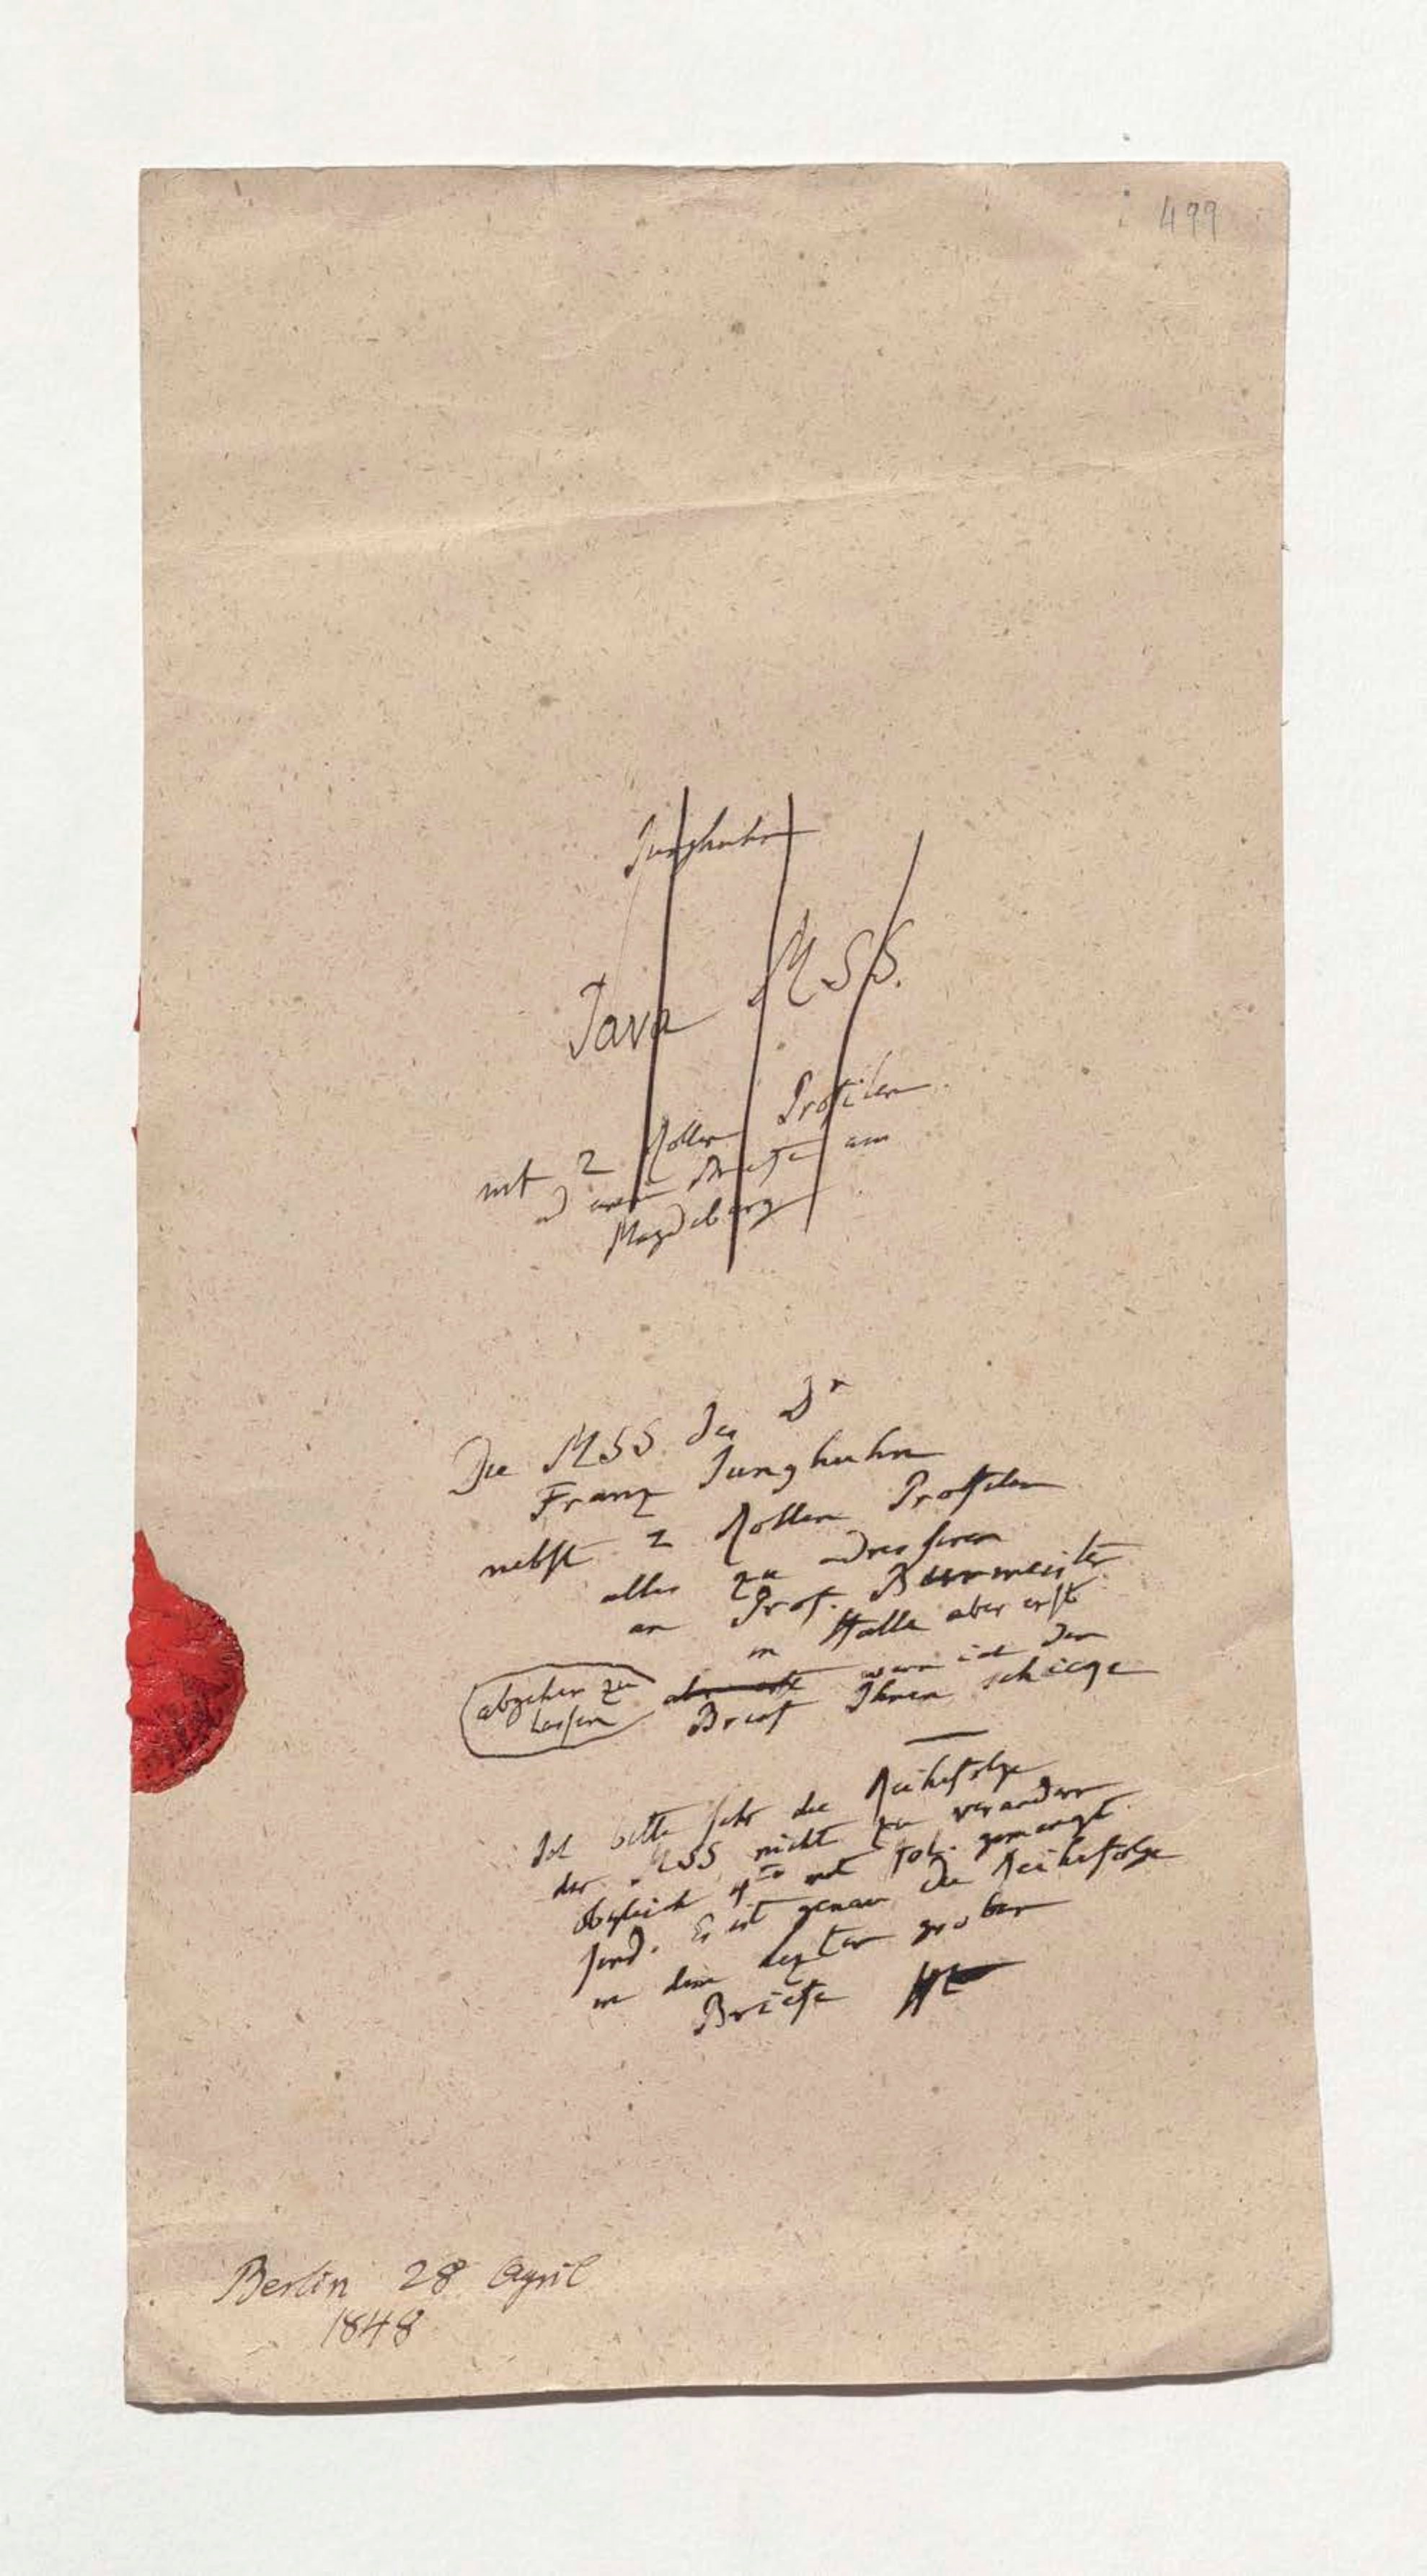 499
Junghuhn
Java MSS.
mit 2 Rollen Profilen
Magdeburg
Die MSS des Dr
Franz Junghuhn
nebst 2 Rollen Profilen
alles zu adressiren
an Prof. Burmeister
in Halle aber erst
abgehen zu
lassen
aber erst wenn ich den
Brief Ihnen schicge
Ich bitte sehr die Reihefolge
der MSS nicht zu verandern
obgleich 4to mit fol. gemengt
sind. Es ist genau die Reihefolge
in dem lezten grosen
Briefe Ht
Berlin 28 April
1848